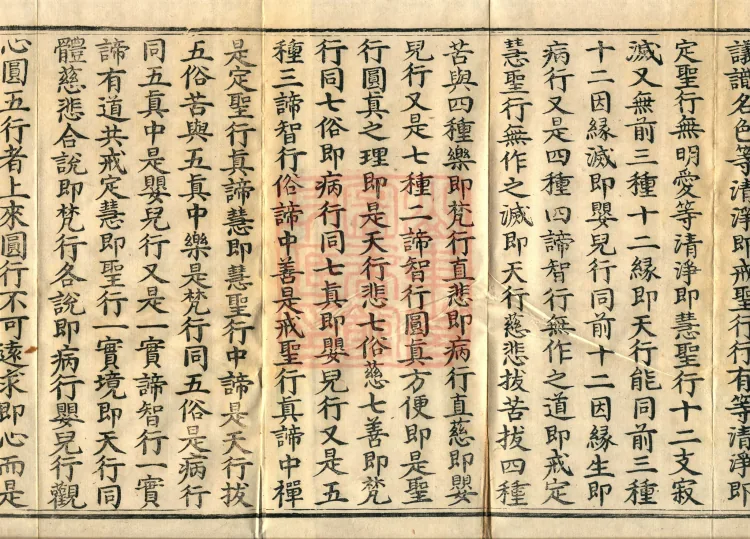 議識名色等清淨即戒聖行行有等清淨即
定聖行無明愛等清淨即慧聖行十二支寂
滅又無前三種十二緣即天行能同前三種
十二因緣滅即嬰兒行同前十二因緣生即
病行又是四種四諦智行無作之道即戒定
慧聖行無作之滅即天行慈悲拔苦拔四種
苦與四種樂即梵行直悲即病行直慈即嬰
兒行又是七種二諦智行圓真方便即是聖
行圓真之理即是天行悲七俗慈七善即梵
行同七俗即病行同七真即嬰兒行又是五
種三諦智行俗諦中善是戒聖行真諦中禪
是定聖行真諦慧即慧聖行中諦是天行拔
五俗苦與五真中樂是梵行同五俗是病行
同五真中是嬰兒行又是一實諦智行一實
諦有道共戒定慧即聖行一實境即天行同
體慈悲合說即梵行各說即病行嬰兒行觀
心圓五行者上來圓行不可遠求即心而是